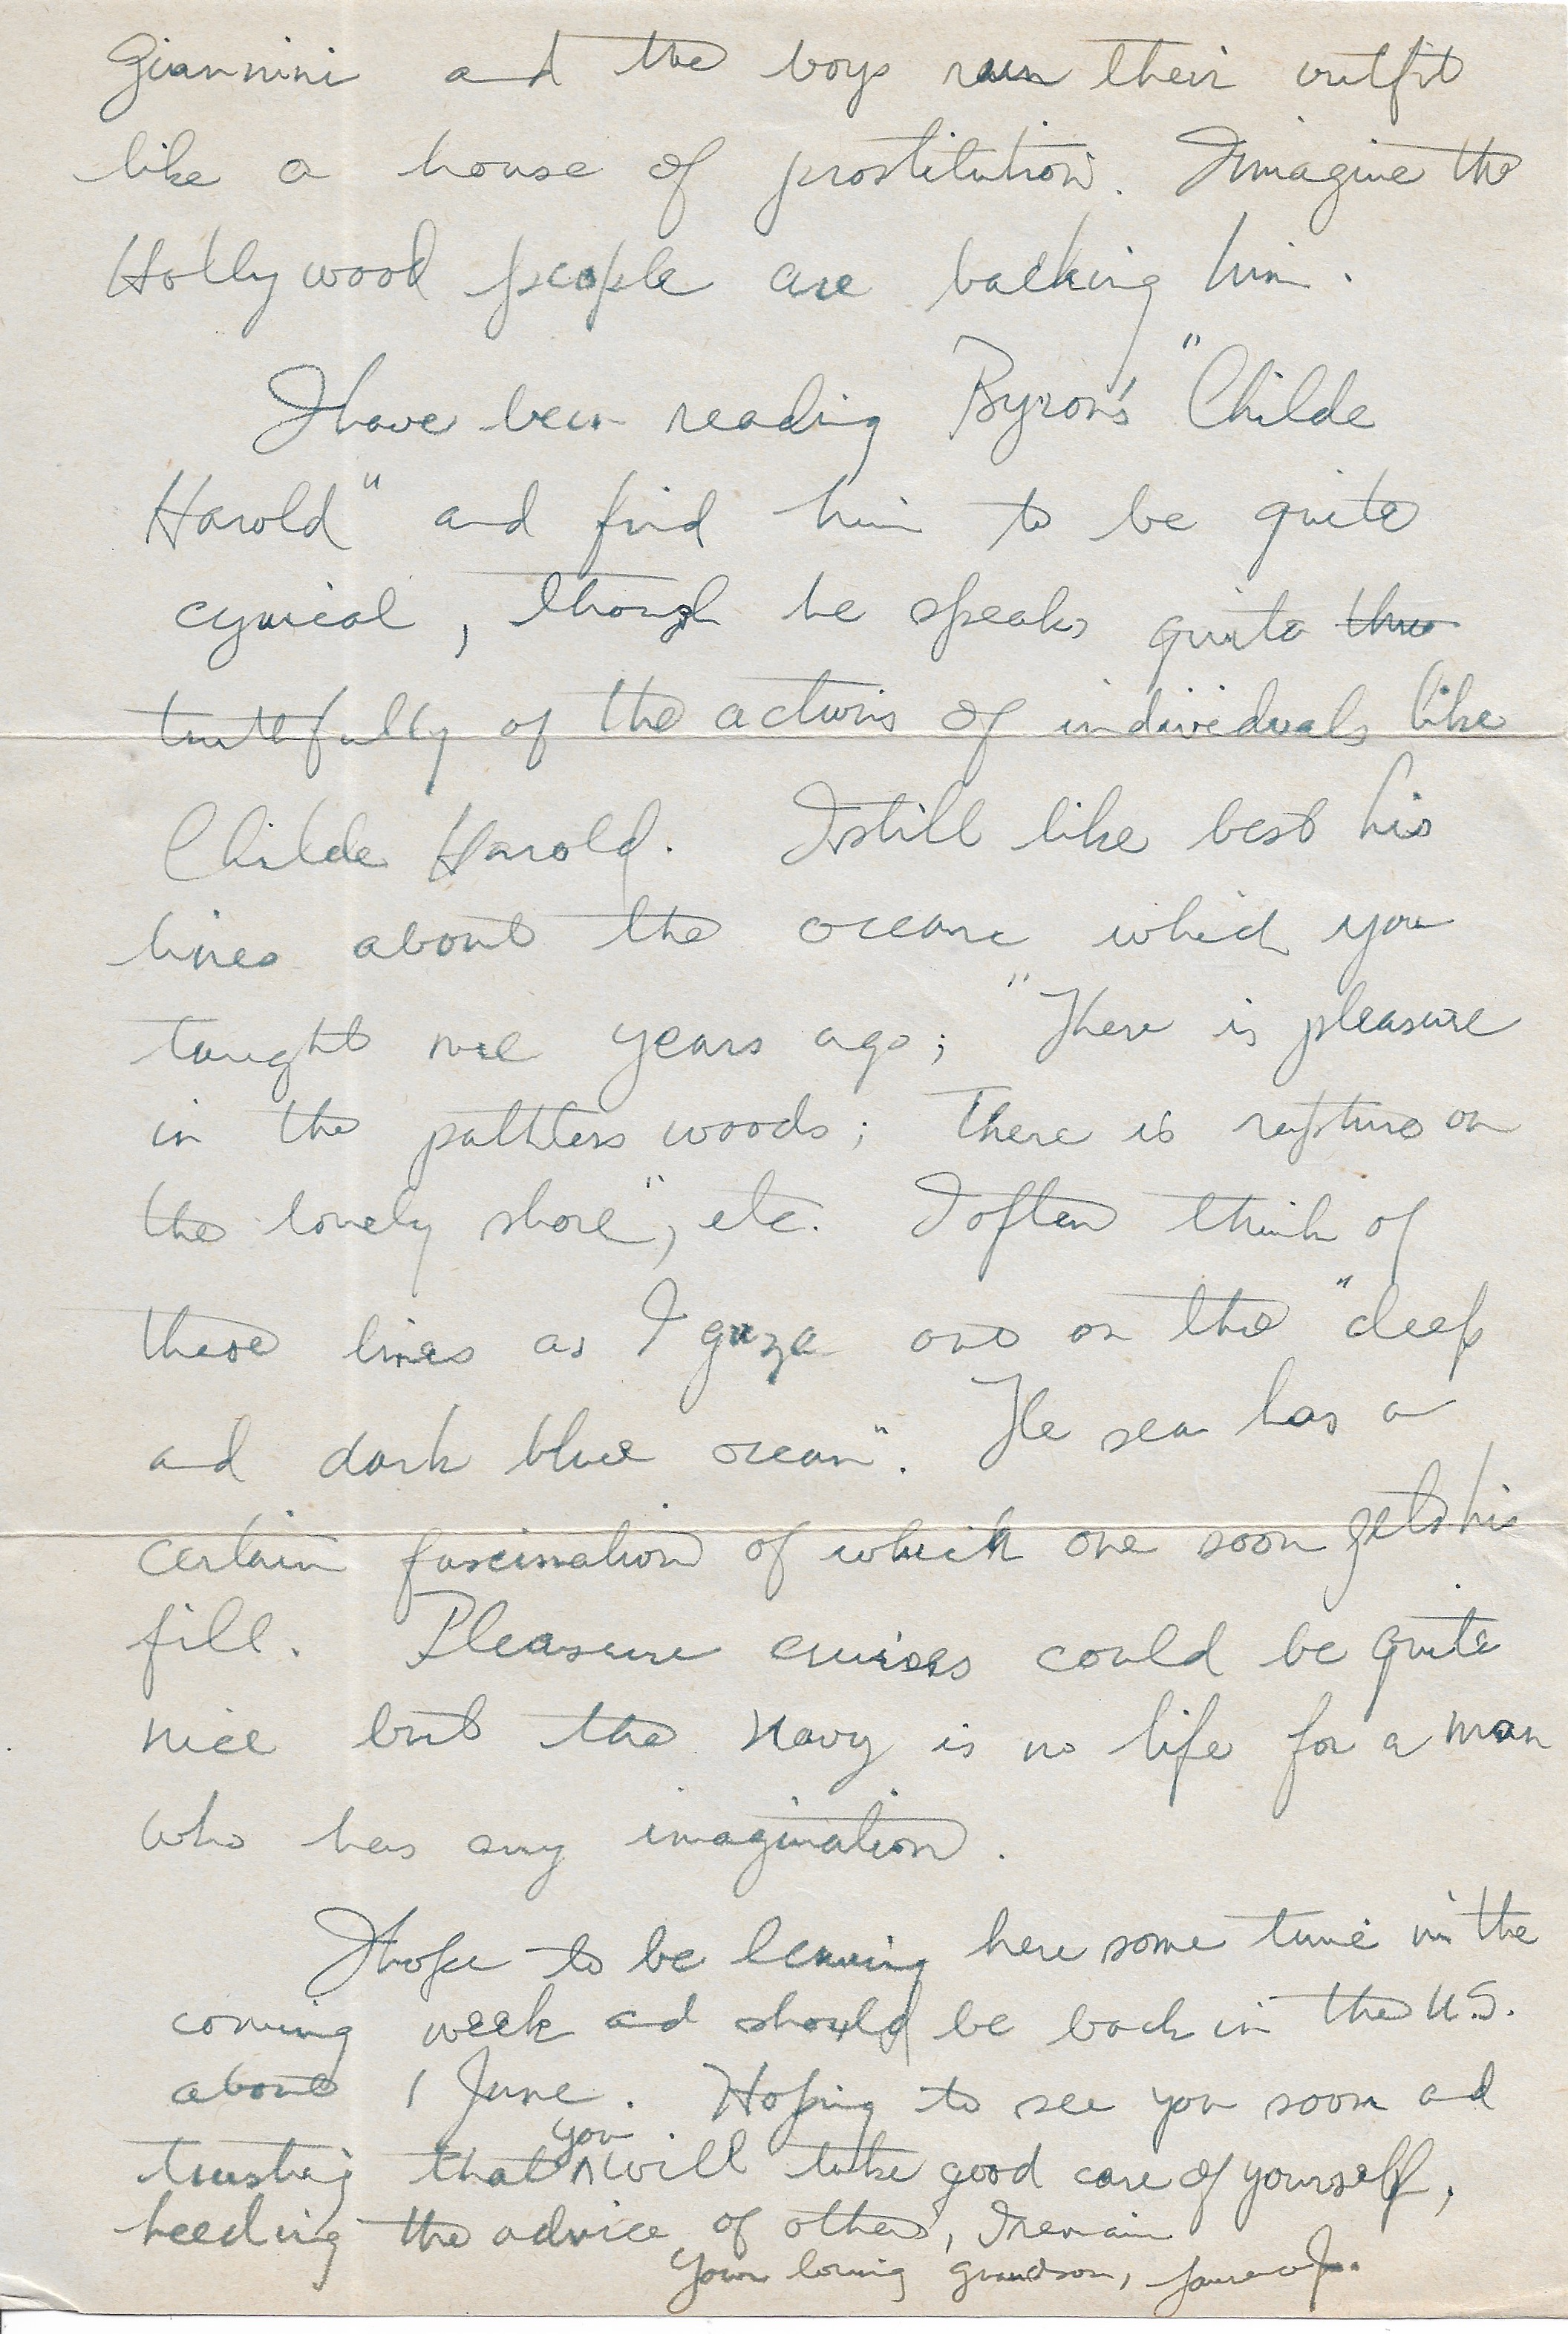 Giannini and the boys run their outfit
like a house of prostitution. I imagine the
Hollywood people are backing him.
I have been reading Byron's "Childe
Harold" and find him to be quite
cynical, though he speaks quite thru
truthfully of the actions of individuals like
Childe Harold. I still like best his
lines about the oceane which you
taught me years ago; "There is pleasure
in the pathless woods; There is rapture on
the lonely shore", etc. I often think of
these lines as I gaze out on the "deep
and dark blue ocean". The sea has a
certain fascination of which one soon gets his
fill. Pleasure cruises could be quite
nice but the Navy is no life for a man
who has any imagination.
I hope to be leaving here some time in the
coming week and should be back in the U.S.
about 1 June. Hoping to see you soon and
trusting that you will take good care of yourself,
heeding the advice of others, I remain
Your loving grandson, James Jr.